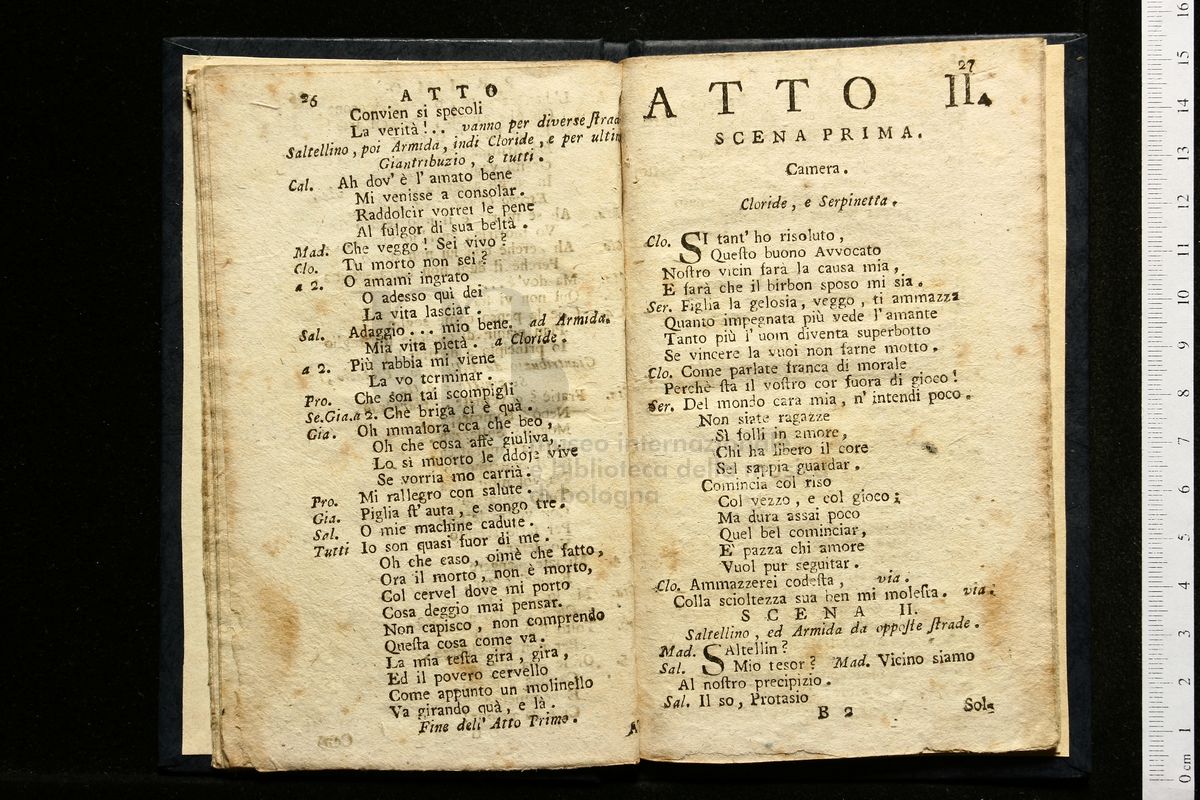 26
ATTO
Convien si specoli
La verità!.. vanno per diverse ſtrad
Saltellino, poi Armida, indi Cloride, e per ultim
Giantribuzio, e tutti.
Cal. Ah dov' è l' amato bene
Mi venisse a consolar.
Raddolcir vorrei le pene
Al fulgor di sua beltà.
Mad. Che veggo! Sei vivo?
Clo. Tu morto non sei?
a 2. O amami ingrato
O adesso qui dei
La vita lasciar.
Sal. Adaggio... mio bene. ad Armida.
Mia vita pietà. a Cloride.
a 2. Più rabbia mi viene
La vo terminar.
Pro. Che son tai scompigli
Se.Gia.a 2. Che briga ci è quà.
Gia. Oh mmalora cca che beo,
Oh che cosa affè giuliva,
Lo si muorto le ddoje vive
Se vorria mo carrià.
Pro. Mi rallegro con salute.
Gia. Piglia ſt' auta, e songo tre.
Sal. O mie machine cadute.
Tutti Io son quasi fuor di me.
Oh che caso, oimè che fatto,
Ora il morto, non è morto,
Col cervel dove mi porto
Cosa deggio mai pensar.
Non capisco, non comprendo
Queſta cosa come va.
La mia teſta gira, gira,
Ed il povero cervello
Come appunto un molinello
Va girando quà, e là.
Fine dell' Atto Primo.
27
ATTO II.
SCENA PRIMA.
Camera.
Cloride, e Serpinetta.
Clo. SI tant' ho risoluto,
Queſto buono Avvocato
Noſtro vicin farà la causa mia,
E farà che il birbon sposo mi sia.
Ser. Figlia la gelosia, veggo, ti ammazza
Quanto impegnata più vede l' amante
Tanto più l' uom diventa superbotto
Se vincere la vuoi non farne motto.
Clo. Come parlate franca di morale
Perchè ſta il voſtro cor fuora di gioco!
Ser. Del mondo cara mia, n' intendi poco.
Non siate ragazze
Sì folli in amore,
Chi ha libero il core
Sel sappia guardar.
Comincia col riso
Col vezzo, e col gioco;
Ma dura assai poco
Quel bel cominciar,
E' pazza chi amore
Vuol pur seguitar.
Clo. Ammazzerei codeſta, via.
Colla scioltezza sua ben mi moleſta. via.
SCENA II.
Saltellino, ed Armida da oppoſte ſtrade.
Mad. SAltellin?
Sal. Mio tesor? Mad. Vicino siamo
Al noſtro precipizio.
Sal. Il so, Protasio
B 2
Sol-
museo internazionale
e biblioteca della
di bologna
0 cm 1 2 3 4 5 6 7 8 9 10 11 12 13 14 15 16